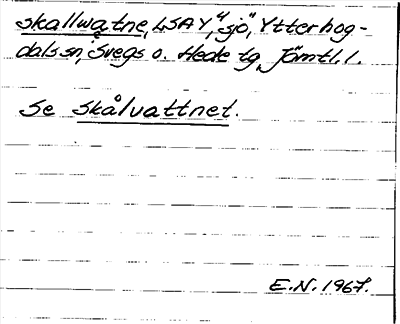 skallwatne, LSA Y, "sjö", Ytterhog-
dals sn, Svegs o. Hede tg, Jämtl. l.
Se skålvattnet.
E.N. 1967.